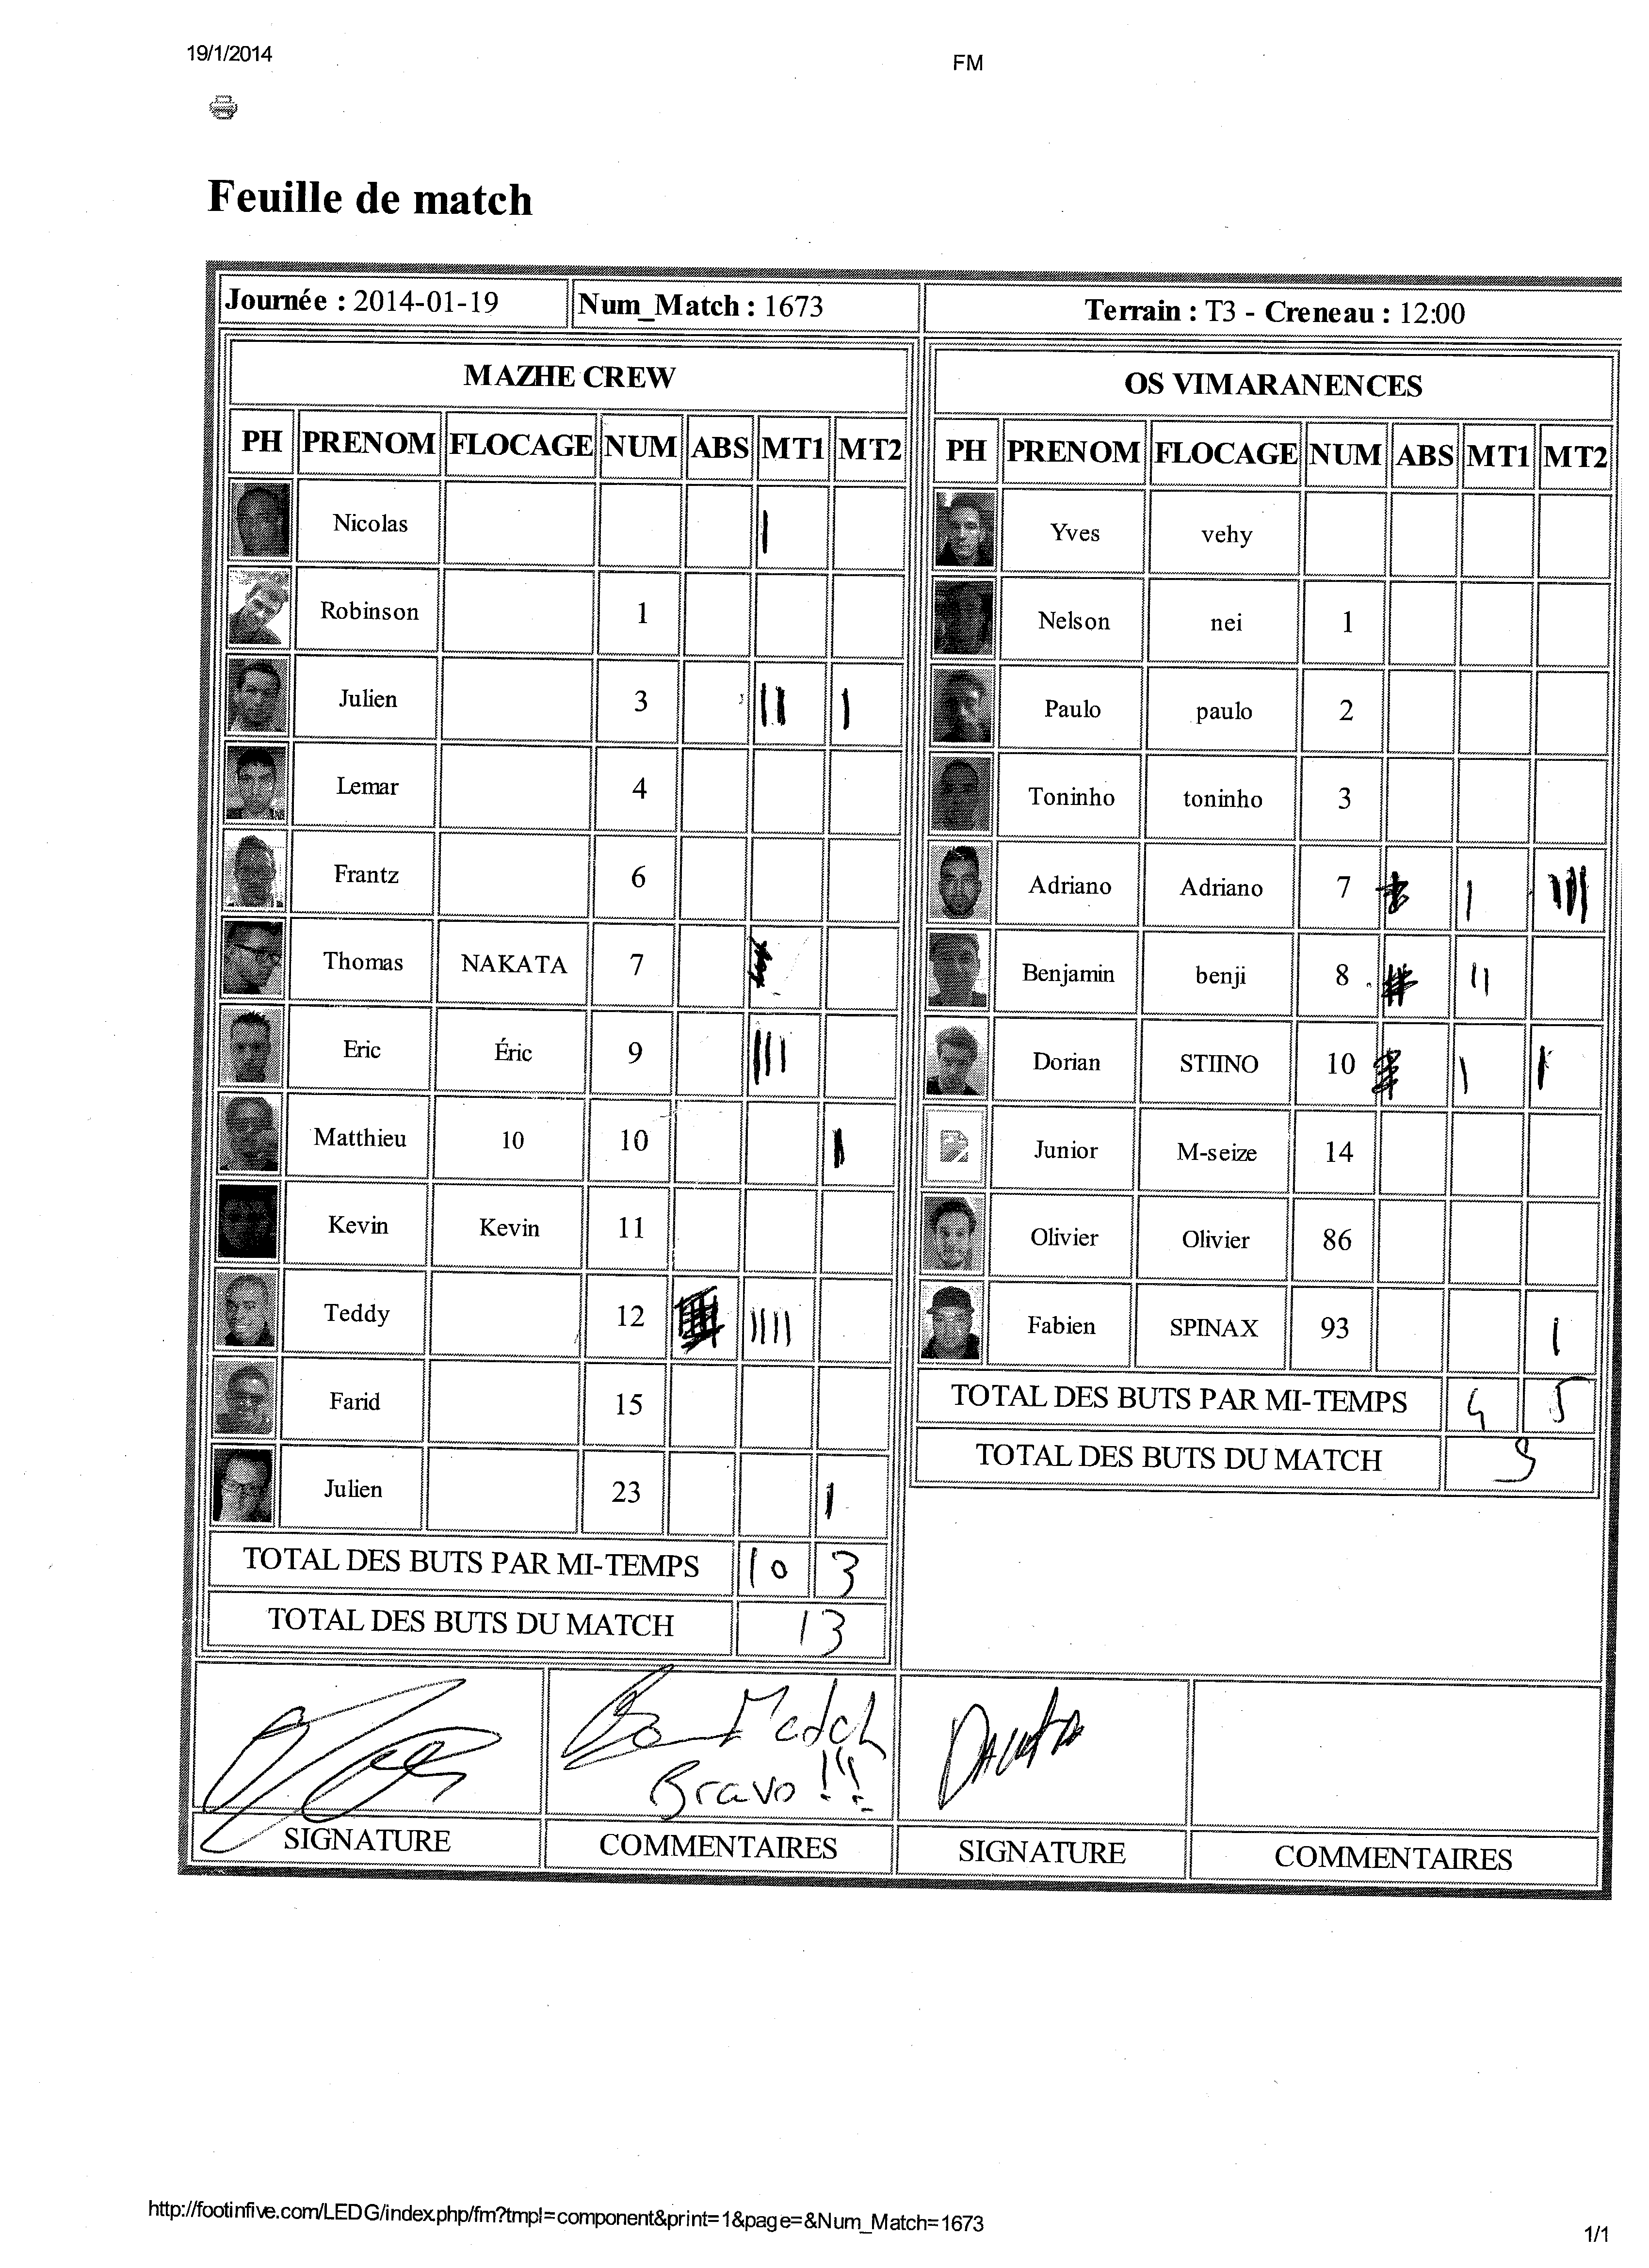 19/1/2014 FM
Feuille de match
Journée : 2014-01-19 Num_Match : 1673 Terrain : T3 - Creneau : 12:00
MAZHE CREW
PH PRENOM FLOCAGE NUM ABS MT1 MT2
Nicolas |
Robinson 1
Julien 3 || |
Lemar 4
Frantz 6
Thomas NAKATA 7
Eric Éric 9 |||
Matthieu 10 10 |
Kevin Kevin 11
Teddy 12 ||||
Farid 15
Julien 23 |
TOTAL DES BUTS PAR MI-TEMPS 10 3
TOTAL DES BUTS DU MATCH 13
OS VIMARANENCES
PH PRENOM FLOCAGE NUM ABS MT1 MT2
Yves vehy
Nelson nei 1
Paulo paulo 2
Toninho toninho 3
Adriano Adriano 7 | |||
Benjamin benji 8 ||
Dorian STIINO 10 | |
Junior M-seize 14
Olivier Olivier 86
Fabien SPINAX 93 |
TOTAL DES BUTS PAR MI-TEMPS 4 5
TOTAL DES BUTS DU MATCH 9
Bon Match
Bravo !!!
SIGNATURE COMMENTAIRES SIGNATURE COMMENTAIRES
http://footinfive.com/LEDG/index.php/fm?tmpl=component&print=1&page=&Num_Match=1673
1/1